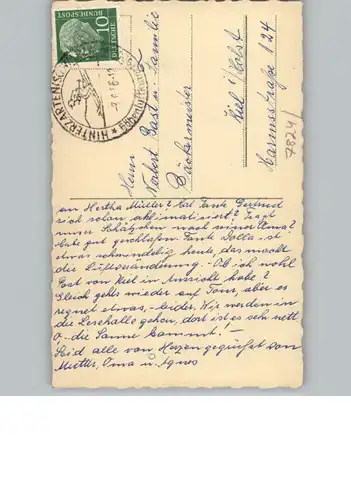 DEUTSCHE BUNDESPOST
10
HINTERZARTEN
Herrn
Norbert Bast u. Familie
Bäckermeister
Kiel i/Holst
Harmsstraße 124
7824
an Hertha Müller? Hat Tante Gertrud
sich schon aklimatisiert? Fragt
unser Schätzchen nach seiner Oma?
Habe gut geschlafen. Tante Dolla ist
etwas schwindelig heute, das macht
die Luftveränderung - Ob ich wohl
Post von Kiel in Aussicht habe?
Gleich gehts wieder auf Tour, aber es
regnet etwas, - leider. Wir werden in
die Lesehalle gehen, dort ist es sehr nett
O - die Sonne kommt! -
Seid alle von Herzen gegrüßt von
Mutter, Oma u. Agnes